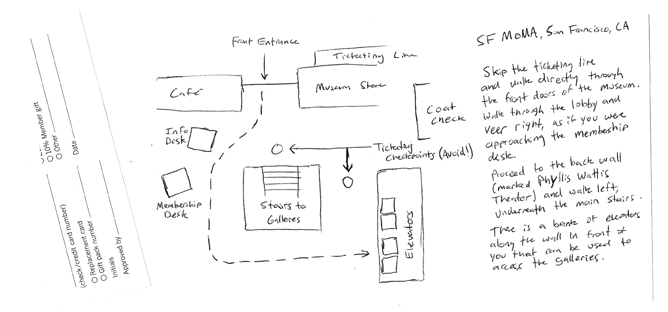 Front Entrance
Ticketing Line
Museum Store
Café
Coat
Check
Info
Desk
Ticketing
Checkpoints (Avoid!)
Membership
Desk
Stairs to
Galleries
Elevators
SF MoMA, San Francisco, CA
Skip the ticketing line
and walk directly through
the front doors of the museum.
Walk through the lobby and
veer right, as if you were
approaching the membership
desk.
Proceed to the back wall
(marked Phyllis Wattis
Theater) and walk left,
underneath the main stairs.
There is a bank of elevators
along the wall in front of
you that can be used to
access the galleries.
10% Member gift
Other
Date
(check/credit card number)
Replacement card
Gift pack number
Initials
Approved by